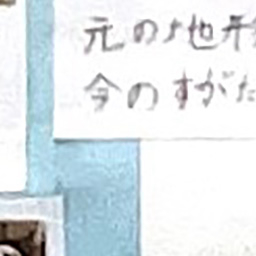 元の地形
今のすがた